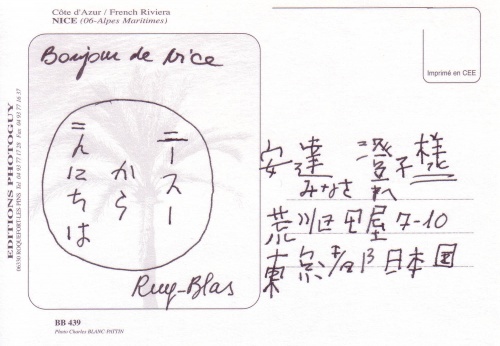 Côte d'Azur / French Riviera
NICE (06-Alpes Maritimes)
Bonjour de Nice
ニースー
から
こんにちは
Ruy-Blas
BB 439
Photo Charles BLANC-PATTIN
EDITIONS PHOTOGUY
06330 ROQUEFORT-LES-PINS Tel 04 93 77 17 29 Fax 04 93 77 16 37
Imprimé en CEE
安達 澄子様
みなさ
荒川区 7-10
東京 日本国